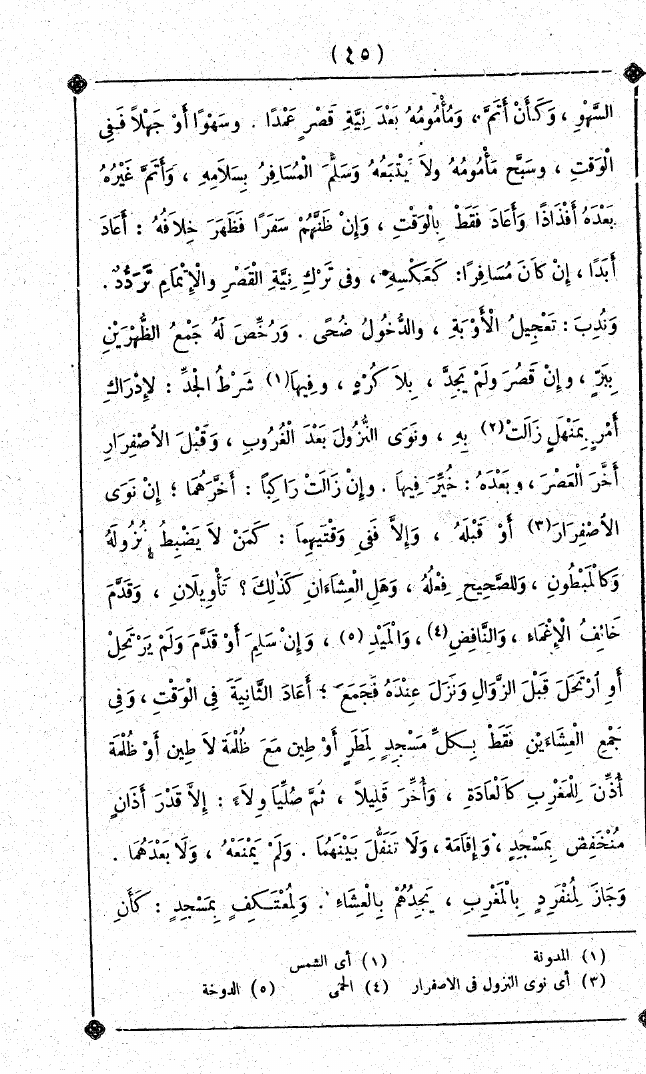 (٤٥)
السَّهْوِ ، وَكَأَنْ أَتَمَّ ، وَمَأْمُومُهُ بَعْدَ نِيَّةِ قَصْرٍ عَمْدًا . وسَهْوًا أَوْ جَهْلاً فَفِي
الْوَقْتِ ، وسَبَّح مَأْمُومُهُ ولاَ يَتْبَعُهُ وَسَلَّمَ الْمُسَافِرُ بِسَلاَمِهِ ، وَأَتَمَّ غَيْرُهُ
بَعْدَهُ أَفْذَاذًا وَأَعَادَ فَقَطْ بِالْوَقْتِ ، وَإِنْ ظَنَّهُمْ سَفَرًا فَظَهَرَ خِلاَفُهُ : أَعَادَ
أَبَدًا ، إِنْ كَانَ مُسَافِرًا : كَعَكْسِهِ ، وفى تَرْكِ نِيَّةِ الْقَصْرِ والْإِتْمَامِ تَرَدُّدٌ .
وَنُدِبَ : تَعْجِيلُ الْأَوْبَةِ ، والدُّخُولُ ضُحًى . وَرُخِّصَ لَهُ جَمْعُ الظُّهْرَيْنِ
بِبَرٍّ ، وإِنْ قَصُرَ ولَمْ يَجِدَّ ، بِلاَ كُرْهٍ ، وفِيهَا (١) شَرْطُ الْجِدِّ : لِإِدْرَاكِ
أَمْرٍ بِمَنْهَلٍ زَالَتْ (٢) بِهِ ، ونَوَى النُّزُولَ بَعْدَ الْغُرُوبِ ، وَقَبْلَ الاِصْفِرَارِ
أَخَّرَ الْعَصْرَ ، وبَعْدَهُ : خُيِّرَ فِيهَا . وإِنْ زَالَتْ رَاكِبًا : أَخَّرَهُمَا ؛ إِنْ نَوَى
الاِصْفِرَارَ (٣) أَوْ قَبْلَهُ ، وَإِلاَّ فَفِي وَقْتَيْهِمَا : كَمَنْ لاَ يَضْبِطُ نُزُولَهُ
وَكَالْمَبْطُونِ ، وَللصَّحِيحِ فِعْلُهُ ، وَهَلِ الْعِشَاءَانِ كَذَلِكَ ؟ تَأْوِيلاَنِ ، وَقَدَّمَ
خَائِفُ الْإِغْمَاءِ ، وَالنَّافِضِ (٤) ، وَالْمَيْدِ (٥) ، وَإِنْ سَلِمَ أَوْ قَدَّمَ وَلَمْ يَرْتَحِلْ
أَوِ ارْتَحَلَ قَبْلَ الزَّوَالِ وَنَزَلَ عِنْدَهُ فَجَمَعَ ؛ أَعَادَ الثَّانِيَةَ فِي الْوَقْتِ ، وَفِي
جَمْعِ الْعِشَاءَيْنِ فَقَطْ بِكلِّ مَسْجِدٍ لِمَطَرٍ أَوْ طِينٍ مَعَ ظُلْمَةٍ لاَ طِينٍ أَوْ ظُلْمَةٍ
أُذِّنَ لِلْمَغْرِبِ كَالْعَادَةِ ، وَأُخِّرَ قَلِيلاً ، ثُمَّ صُلِّيَا وِلاَءً : إِلاَّ قَدْرَ أَذَانٍ
مُنْخَفِضٍ بِمَسْجِدٍ ، وَإِقَامَةٍ ، وَلَا تَنَفُّلَ بَيْنَهُمَا . وَلَمْ يَمْنَعْهُ ، وَلَا بَعْدَهُمَا .
وَجَازَ لِمُنْفَرِدٍ بِالْمَغْرِبِ ، يَجِدُهُمْ بِالْعِشَاءِ . وَلِمُعْتَكِفٍ بِمَسْجِدٍ : كَأَنِ
(١) المدونة (١) أى الشمس
(٣) أى نوى النزول فى الاصفرار (٤) الحمى (٥) الدوخة